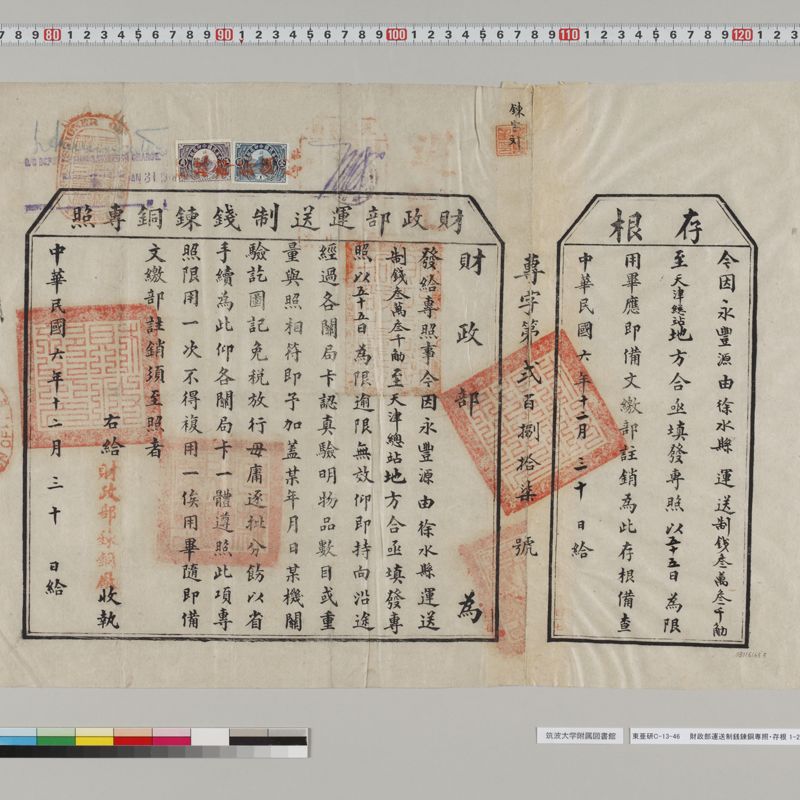 存根
令因永豐源由徐水縣運送制錢叁萬叁千觔
至天津總站地方合亟填發專照以五十五日為限
用畢應即備文繳部註銷為此存根備查
中華民國六年十二月三十日給
專字第弍百捌拾柒號
財政部運送制錢鍊銅專照
財政部為
發給專照事令因永豐源由徐水縣運送
制錢叁萬叁千觔至天津總站地方合亟填發專
照以五十五日為限逾限無效仰即持向沿途
經過各關局卡認真驗明物品數目或重
量與照相符即予加蓋某年月日某機關
驗訖圖記免稅放行毋庸逐批分飭以省
手續為此仰各關局卡一體遵照此項專
照限用一次不得複用一俟用畢隨即備
文繳部註銷須至照者
右給財政部鍊銅廠收執
中華民國六年十二月三十日給
筑波大学附属図書館
東亜研C-13-46 財政部運送制銭錬銅専照・存根 1-2